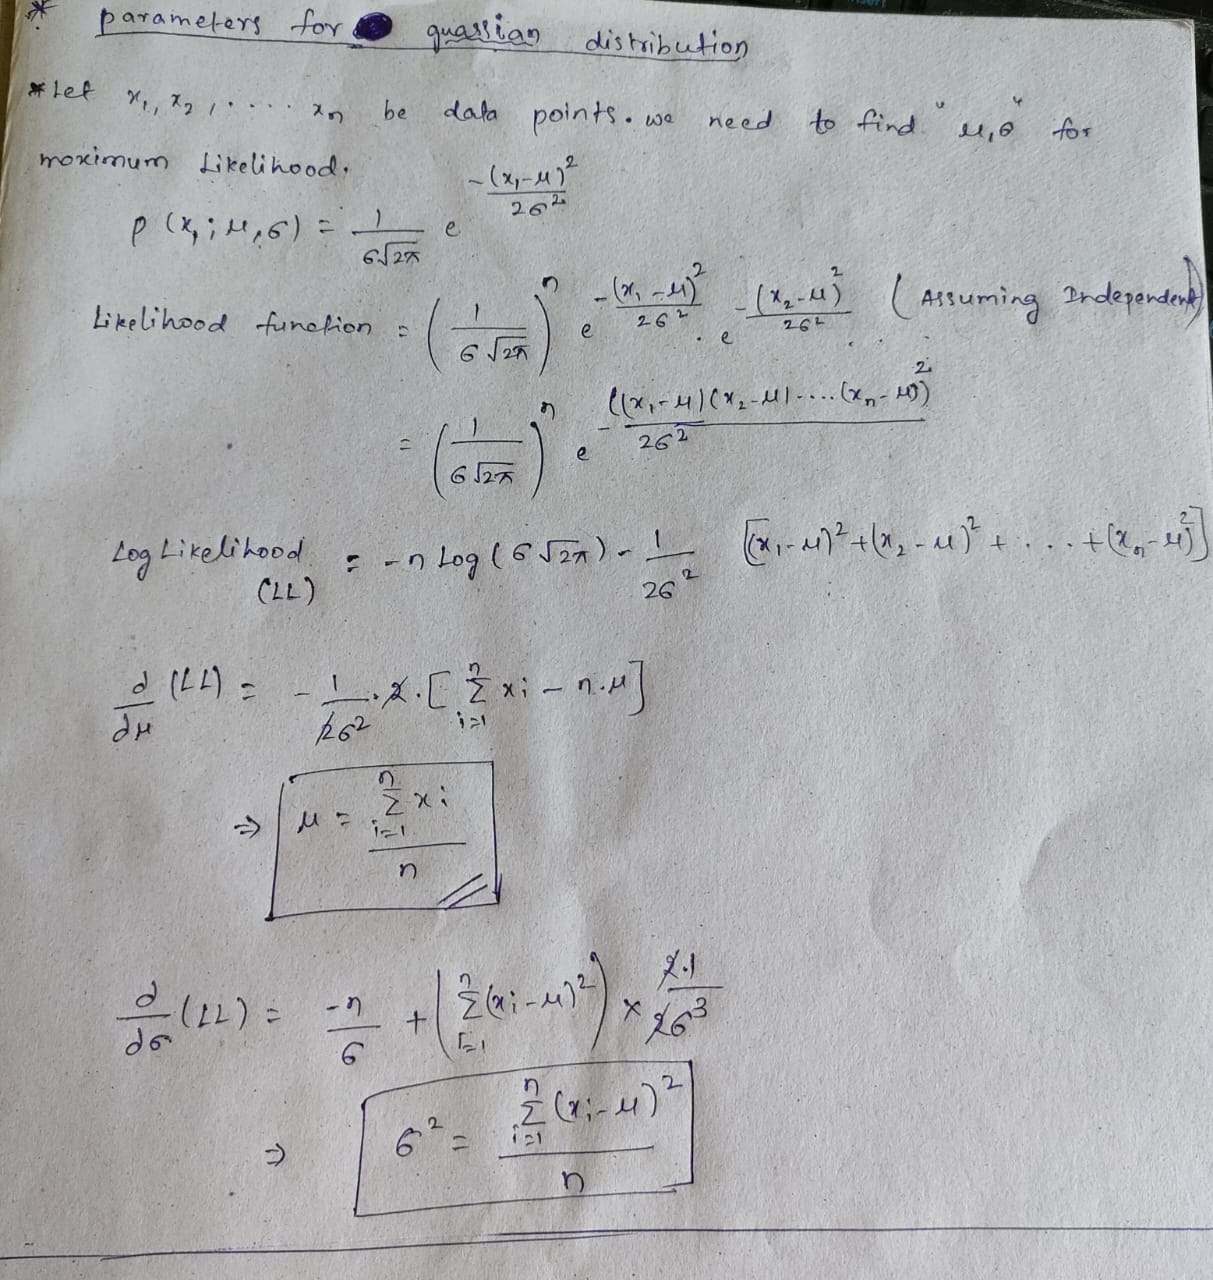 * parameters for guassian distribution
* Let x₁, x₂, ..... xₙ be data points. we need to find "μ,σ" for
maximum Likelihood.
p(x₁; μ,σ) = 1/(σ√2π) e^(-(x₁-μ)²/2σ²)
Likelihood function = (1/(σ√2π))ⁿ e^(-(x₁-μ)²/2σ²) . e^(-(x₂-μ)²/2σ²) . . (Assuming Independent)
= (1/(σ√2π))ⁿ e^(-((x₁-μ)(x₂-μ)....(xₙ-μ))²/2σ²)
Log Likelihood = -n Log(σ√2π) - 1/2σ² [(x₁-μ)²+(x₂-μ)²+ .... +(xₙ-μ)²]
(LL)
d/dμ (LL) = -1/2σ² . 2 . [Σⁿᵢ₌₁ xi - n.μ]
⇒ μ = Σⁿᵢ₌₁ xi / n
d/dσ (LL) = -n/σ + (Σⁿᵢ₌₁ (xi-μ)²) × 2.1/2σ³
⇒ σ² = Σⁿᵢ₌₁ (xi-μ)² / n